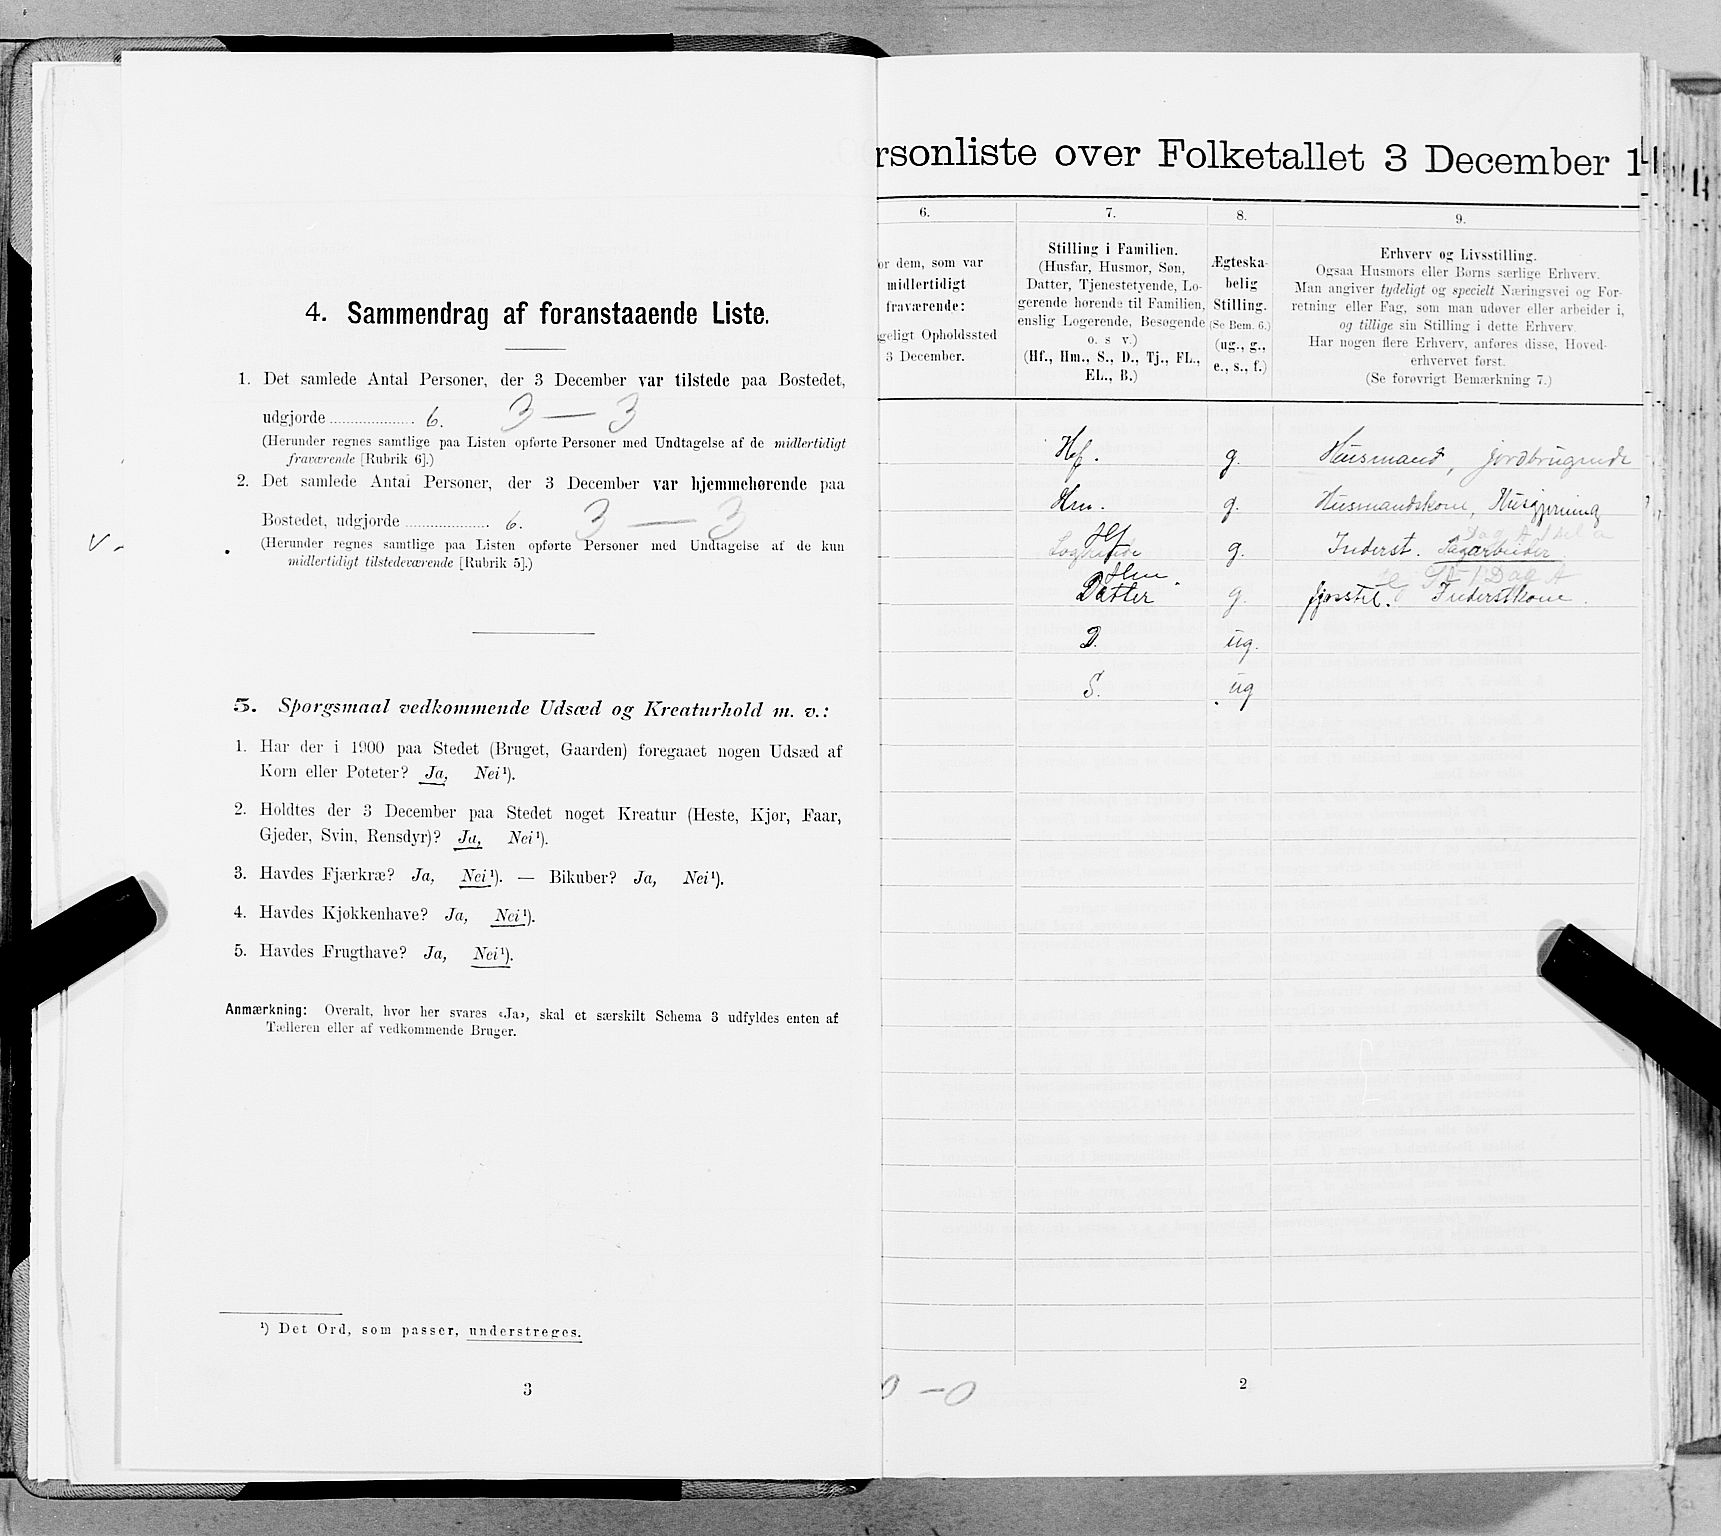 4. Sammendrag af foranstaaende Liste.
1. Det samlede Antal Personer, der 3 December var tilstede paa Bostedet,
udgjorde .................... 6. 3 — 3
(Herunder regnes samtlige paa Listen opførte Personer med Undtagelse af de midlertidigt
fraværende [Rubrik 6].)
2. Det samlede Antal Personer, der 3 December var hjemmehørende paa
Bostedet, udgjorde .................... 6. 3 — 3
(Herunder regnes samtlige paa Listen opførte Personer med Undtagelse af de kun
midlertidigt tilstedeværende [Rubrik 5].)
5. Spørgsmaal vedkommende Udsæd og Kreaturhold m. v.:
1. Har der i 1900 paa Stedet (Bruget, Gaarden) foregaaet nogen Udsæd af
Korn eller Poteter? Ja, Nei¹).
2. Holdtes der 3 December paa Stedet noget Kreatur (Heste, Kjør, Faar,
Gjeder, Svin, Rensdyr)? Ja, Nei¹).
3. Havdes Fjærkræ? Ja, Nei¹). — Bikuber? Ja, Nei¹).
4. Havdes Kjøkkenhave? Ja, Nei¹).
5. Havdes Frugthave? Ja, Nei¹).
Anmærkning: Overalt, hvor her svares «Ja», skal et særskilt Schema 3 udfyldes enten af
Tælleren eller af vedkommende Bruger.
¹) Det Ord, som passer, understreges.
3
rsonliste over Folketallet 3 December 1
6.
or dem, som var
midlertidigt
fraværende:
geligt Opholdssted
3 December.
7.
Stilling i Familien.
(Husfar, Husmor, Søn,
Datter, Tjenestetyende, Lo-
gerende hørende til Familien,
enslig Logerende, Besøgende
o. s v.)
(Hf., Hm., S., D., Tj., FL.,
EL., B.)
8.
Ægteska-
belig
Stilling.
(Se Bem. 6.)
(ug., g.,
e., s., f.)
9.
Erhverv og Livsstilling.
Ogsaa Husmors eller Børns særlige Erhverv.
Man angiver tydeligt og specielt Næringsvei og For-
retning eller Fag, som man udøver eller arbeider i,
og tillige sin Stilling i dette Erhverv.
Har nogen flere Erhverv, anføres disse, Hoved-
erhvervet først.
(Se forøvrigt Bemærkning 7.)
Hf. g. Husmand, jordbrugende
Hm. g. Husmandskone, Husgjerning
Hf
g. Inderst. Dagarbeider
Hm
Datter g. Inderstkone.
D. ug.
S. ug
0 — 0
2